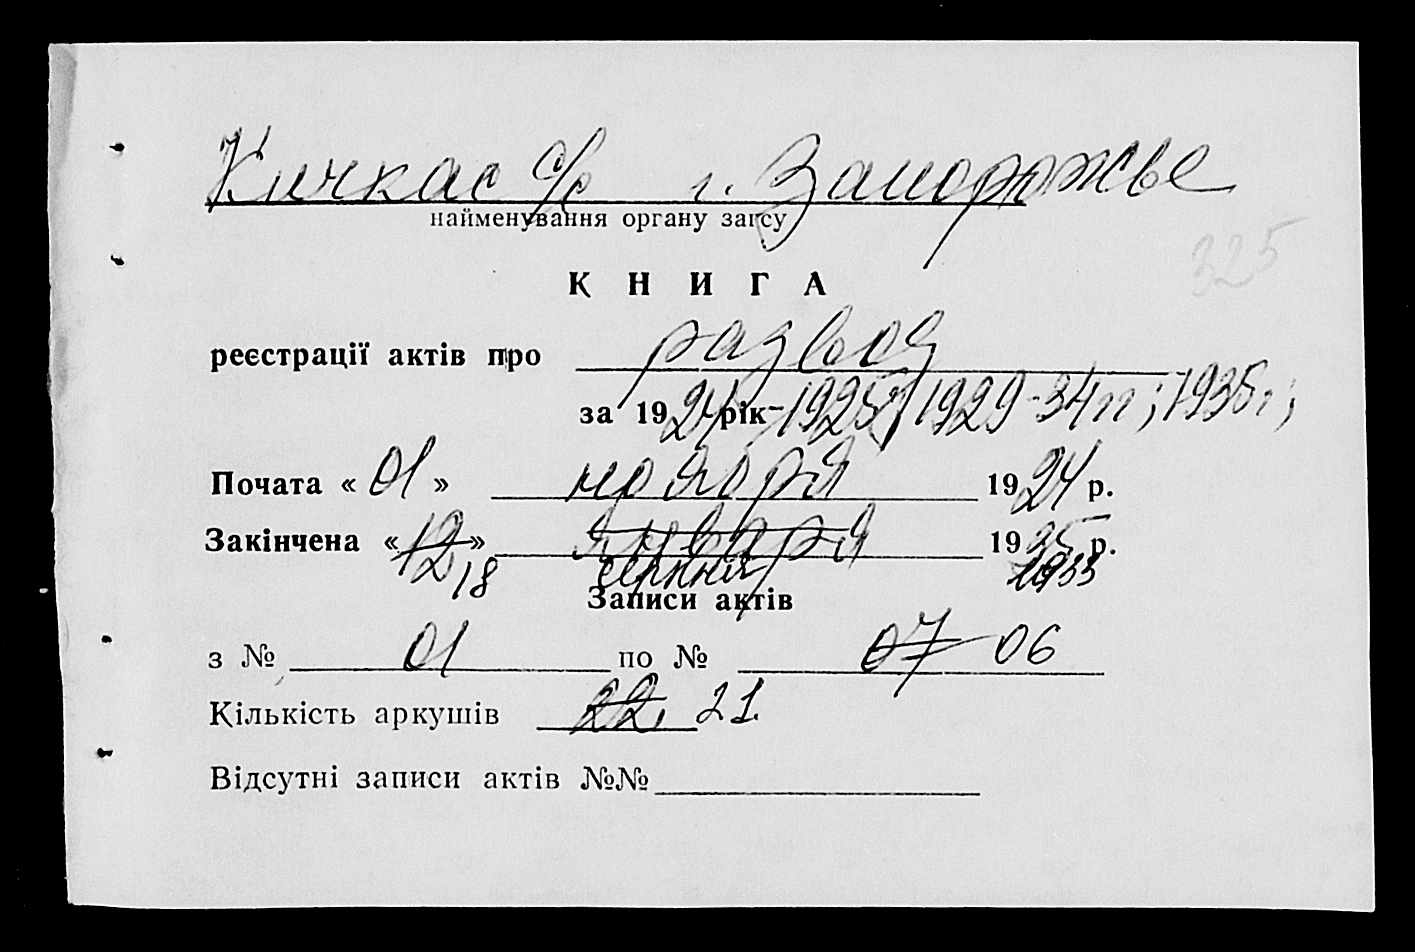 Кичкас с/с г. Запорожье
найменування органу загсу
325
КНИГА
реєстрації актів про развод
за 1924 рік - 1925г; 1929-34гг; 1935г;
Почата «01» ноября 1924 р.
Закінчена «12» января 1935 р.
18 серпня 1933
Записи актів
з № 01 по № 07 06
Кількість аркушів 22. 21.
Відсутні записи актів №№